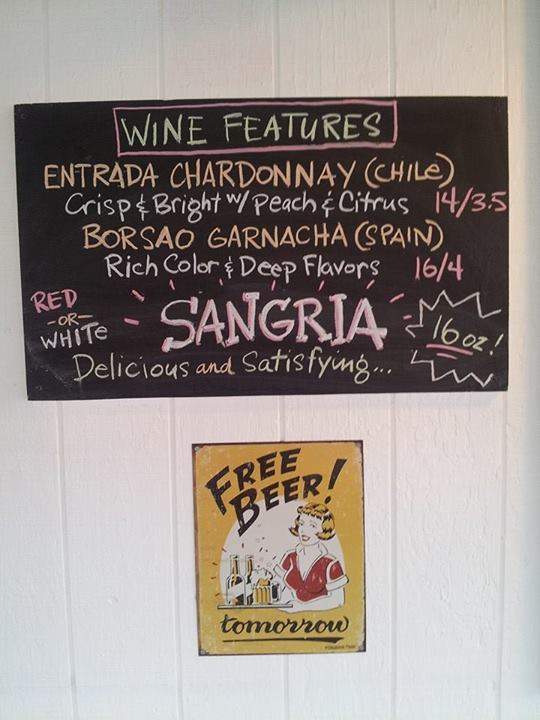 WINE FEATURES
ENTRADA CHARDONNAY (CHILE)
Crisp & Bright w/ Peach & Citrus 14/3.5
BORSAO GARNACHA (SPAIN)
Rich Color & Deep Flavors 16/4
RED
-OR-
WHITE
SANGRIA
16 oz!
Delicious and Satisfying...
FREE
BEER!
tomorrow